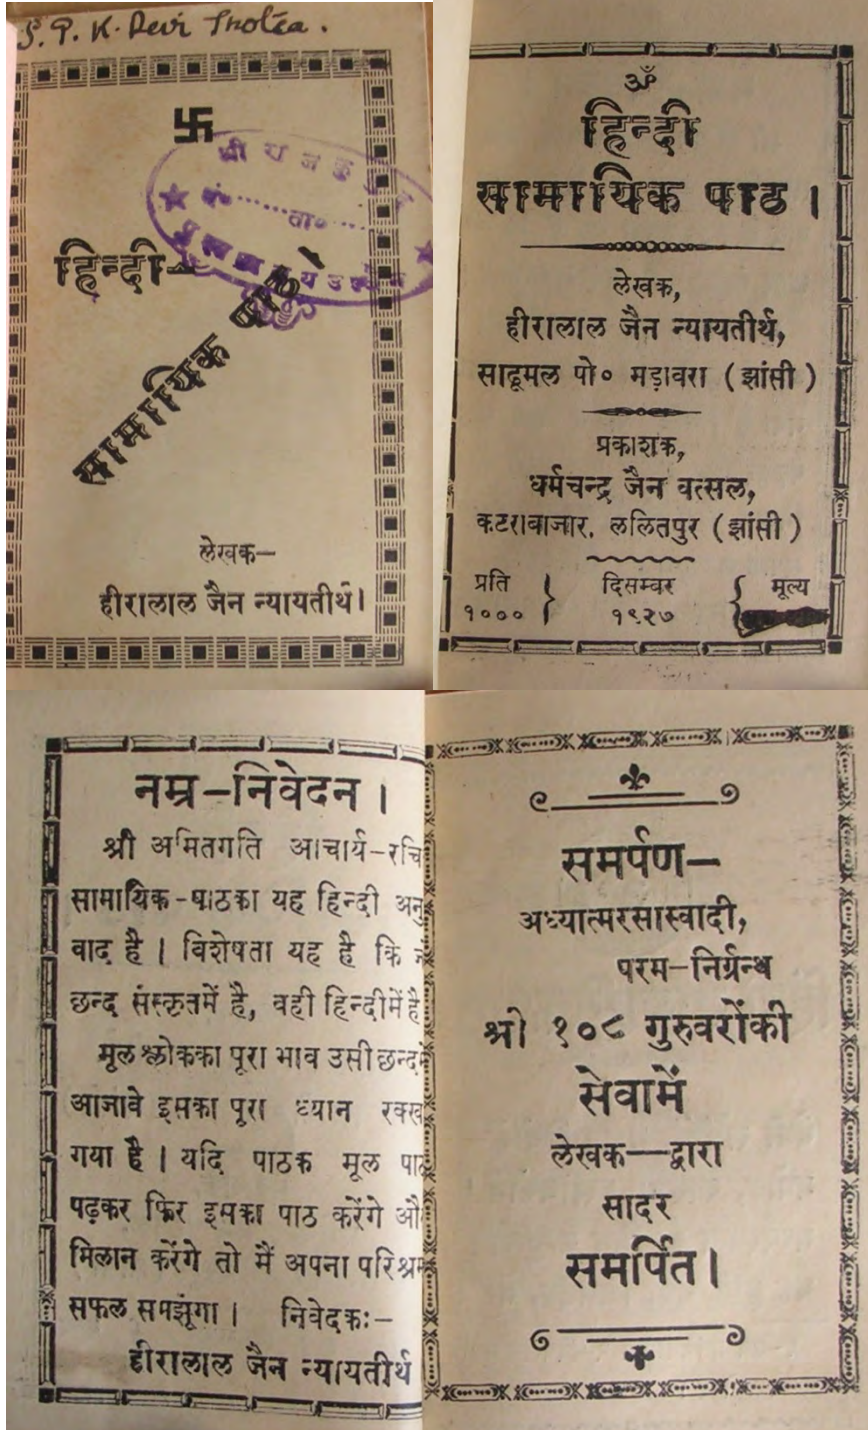 S. P. K. Devi
卐
हिन्दी–
सामायिक पाठ
लेखक—
हीरालाल जैन न्यायतीर्थ।
ॐ
हिन्दी
सामायिक पाठ।
लेखक,
हीरालाल जैन न्यायतीर्थ,
सादूमल पो० मड़ावरा (झांसी)
प्रकाशक,
धर्मचन्द्र जैन वत्सल,
कटराबाजार, ललितपुर (झांसी)
प्रति } दिसम्बर { मूल्य
१००० १९२७
नम्र-निवेदन।
श्री अमितगति आचार्य-रचि
सामायिक-पाठका यह हिन्दी अनु
वाद है। विशेषता यह है कि
छन्द संस्कृतमें है, वही हिन्दीमें है
मूल श्लोकका पूरा भाव उसी छन्दमें
आजावे इसका पूरा ध्यान रक्खा
गया है। यदि पाठक मूल पाठ
पढ़कर फिर इसका पाठ करेंगे औ
मिलान करेंगे तो मैं अपना परिश्रम
सफल समझूंगा। निवेदकः–
हीरालाल जैन न्यायतीर्थ
समर्पण–
अध्यात्मरसास्वादी,
परम-निर्ग्रन्थ
श्री १०८ गुरुवरोंकी
सेवामें
लेखक—द्वारा
सादर
समर्पित।